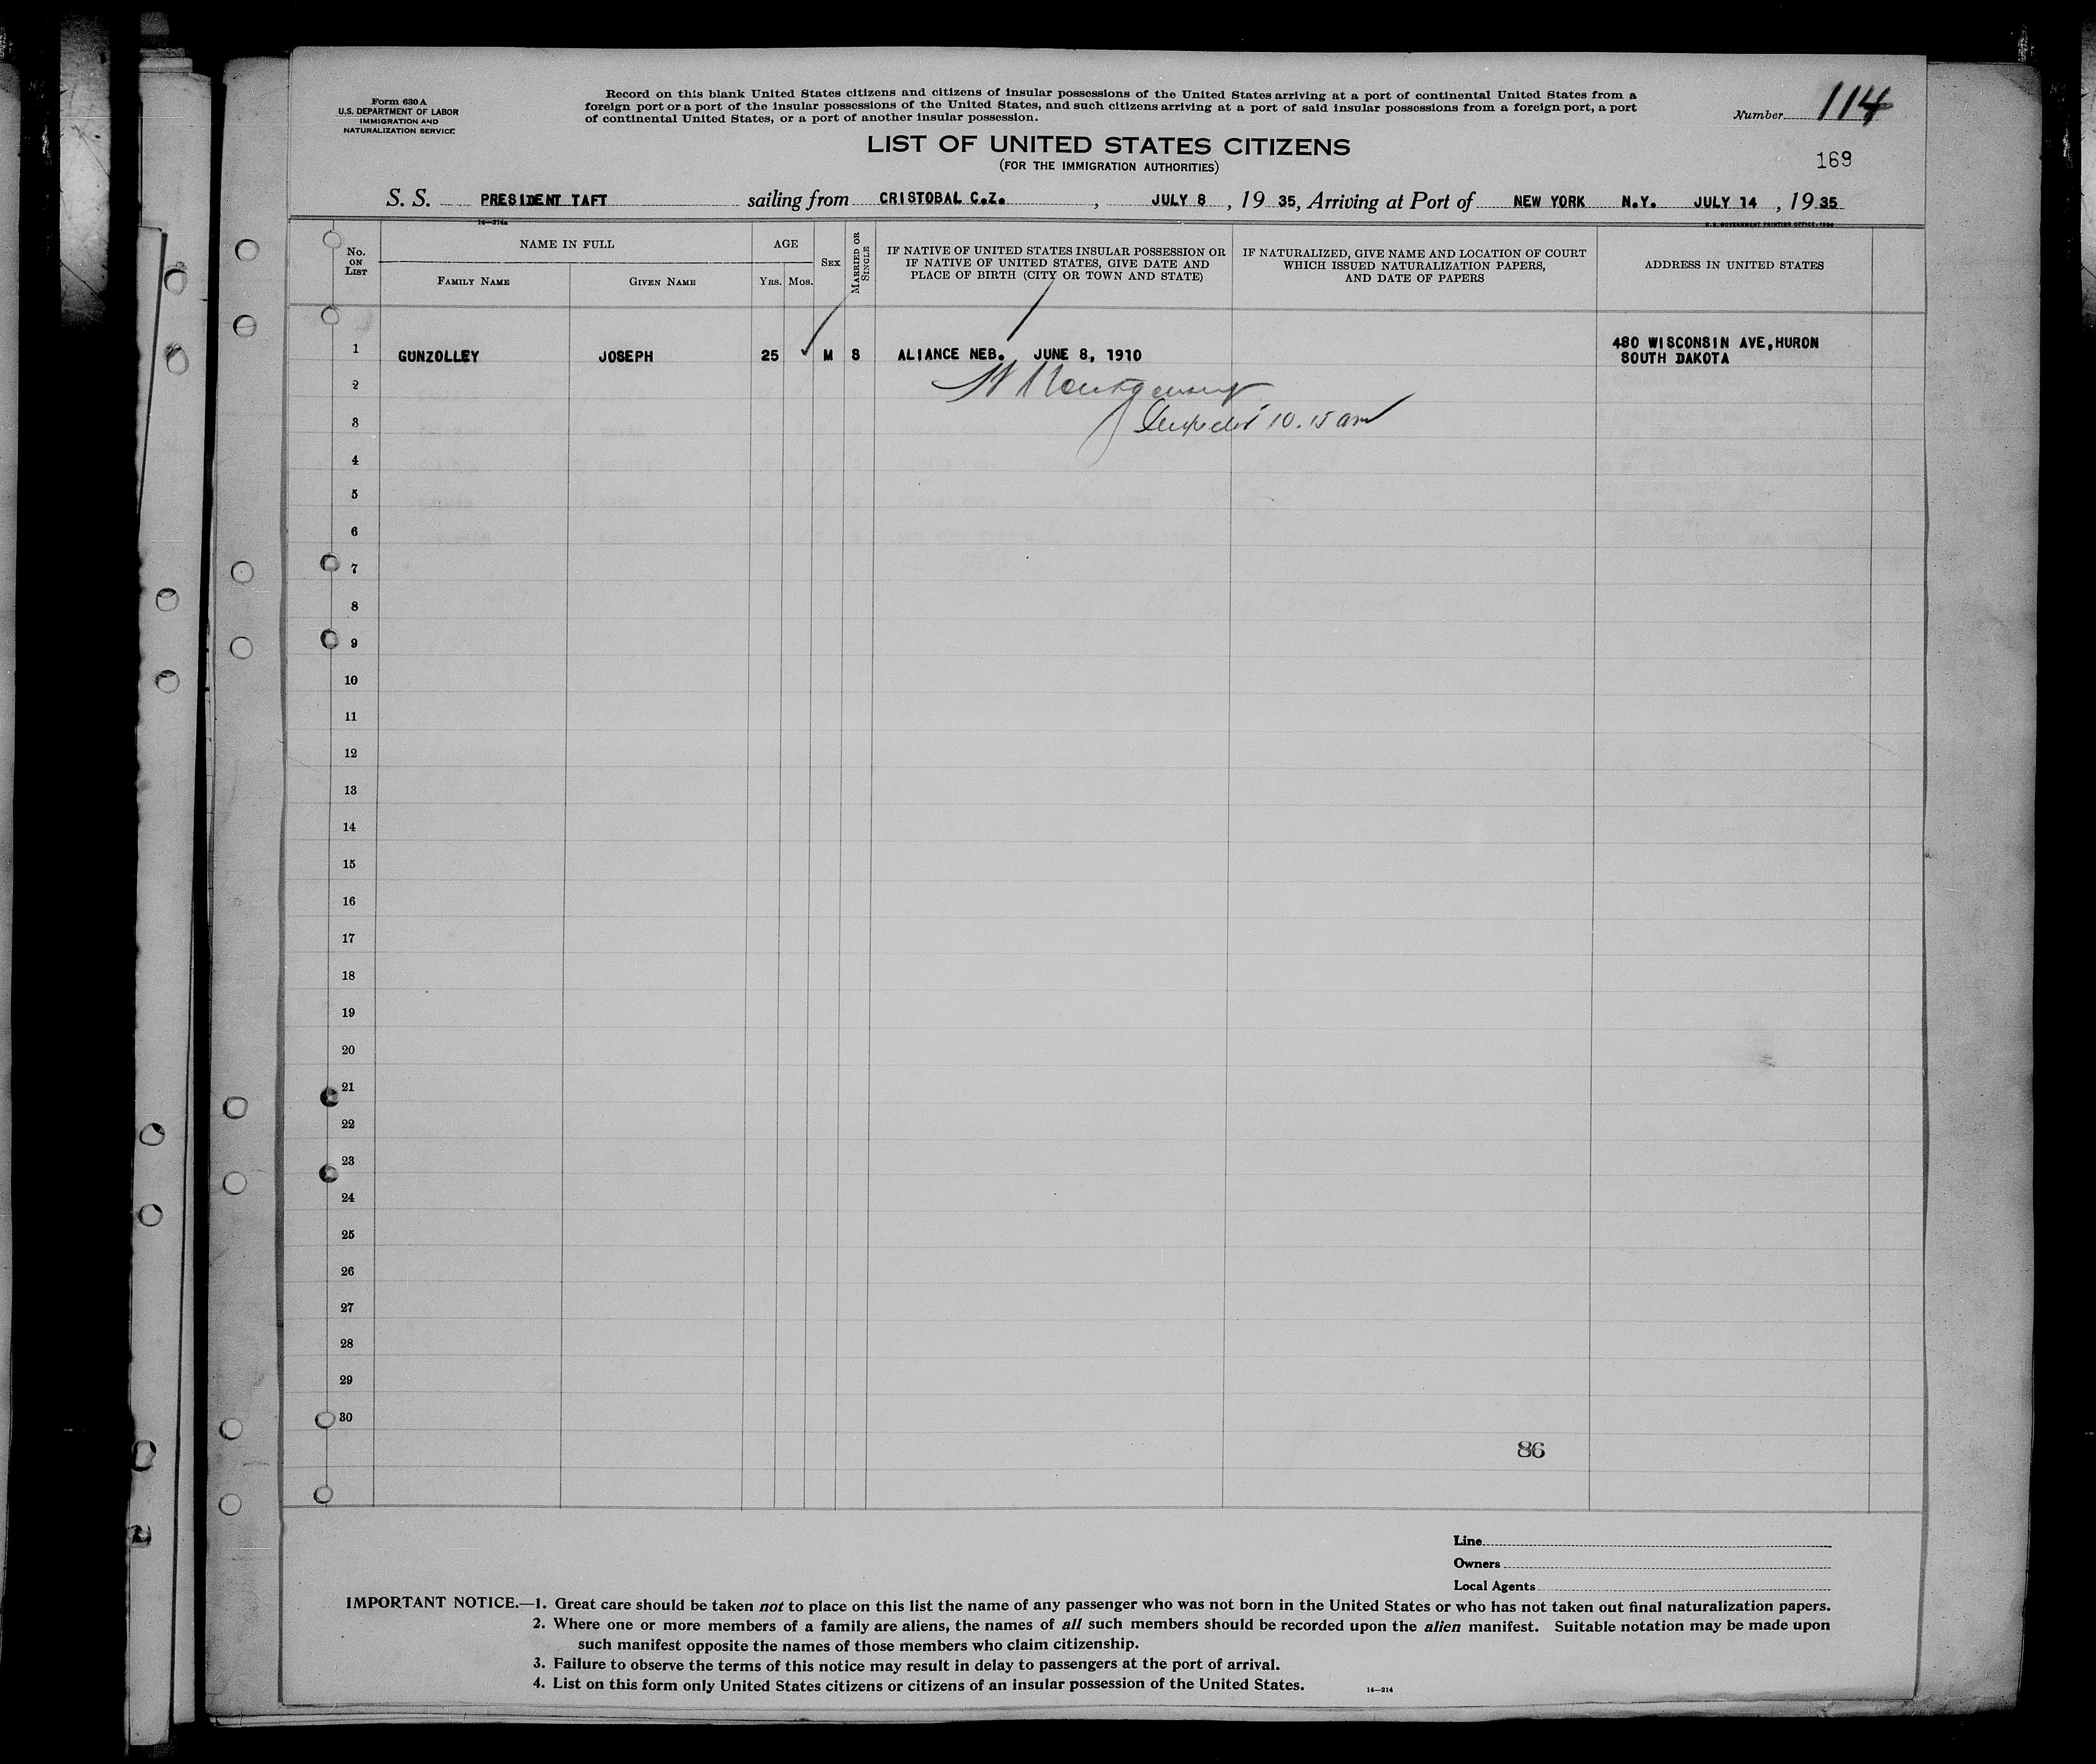 Form 630 A
U.S. DEPARTMENT OF LABOR
IMMIGRATION AND
NATURALIZATION SERVICE
Record on this blank United States citizens and citizens of insular possessions of the United States arriving at a port of continental United States from a
foreign port or a port of the insular possessions of the United States, and such citizens arriving at a port of said insular possessions from a foreign port, a port
of continental United States, or a port of another insular possession.
Number 114
LIST OF UNITED STATES CITIZENS
(FOR THE IMMIGRATION AUTHORITIES)
169
S. S. PRESIDENT TAFT sailing from CRISTOBAL C.Z. , JULY 8 , 19 35, Arriving at Port of NEW YORK N.Y. JULY 14 , 19 35
14—214a
U.S. GOVERNMENT PRINTING OFFICE: 1934
No. ON LIST
NAME IN FULL
FAMILY NAME
GIVEN NAME
AGE
YRS. MOS.
SEX
MARRIED OR SINGLE
IF NATIVE OF UNITED STATES INSULAR POSSESSION OR
IF NATIVE OF UNITED STATES, GIVE DATE AND
PLACE OF BIRTH (CITY OR TOWN AND STATE)
IF NATURALIZED, GIVE NAME AND LOCATION OF COURT
WHICH ISSUED NATURALIZATION PAPERS,
AND DATE OF PAPERS
ADDRESS IN UNITED STATES
1 GUNZOLLEY JOSEPH 25 ✓ M S ALIANCE NEB. JUNE 8, 1910 480 WISCONSIN AVE,HURON
SOUTH DAKOTA
2 Montgomery
3 10.15 am
4
5
6
7
8
9
10
11
12
13
14
15
16
17
18
19
20
21
22
23
24
25
26
27
28
29
30
86
Line
Owners
Local Agents
IMPORTANT NOTICE.—1. Great care should be taken not to place on this list the name of any passenger who was not born in the United States or who has not taken out final naturalization papers.
2. Where one or more members of a family are aliens, the names of all such members should be recorded upon the alien manifest. Suitable notation may be made upon
such manifest opposite the names of those members who claim citizenship.
3. Failure to observe the terms of this notice may result in delay to passengers at the port of arrival.
4. List on this form only United States citizens or citizens of an insular possession of the United States.
14—214